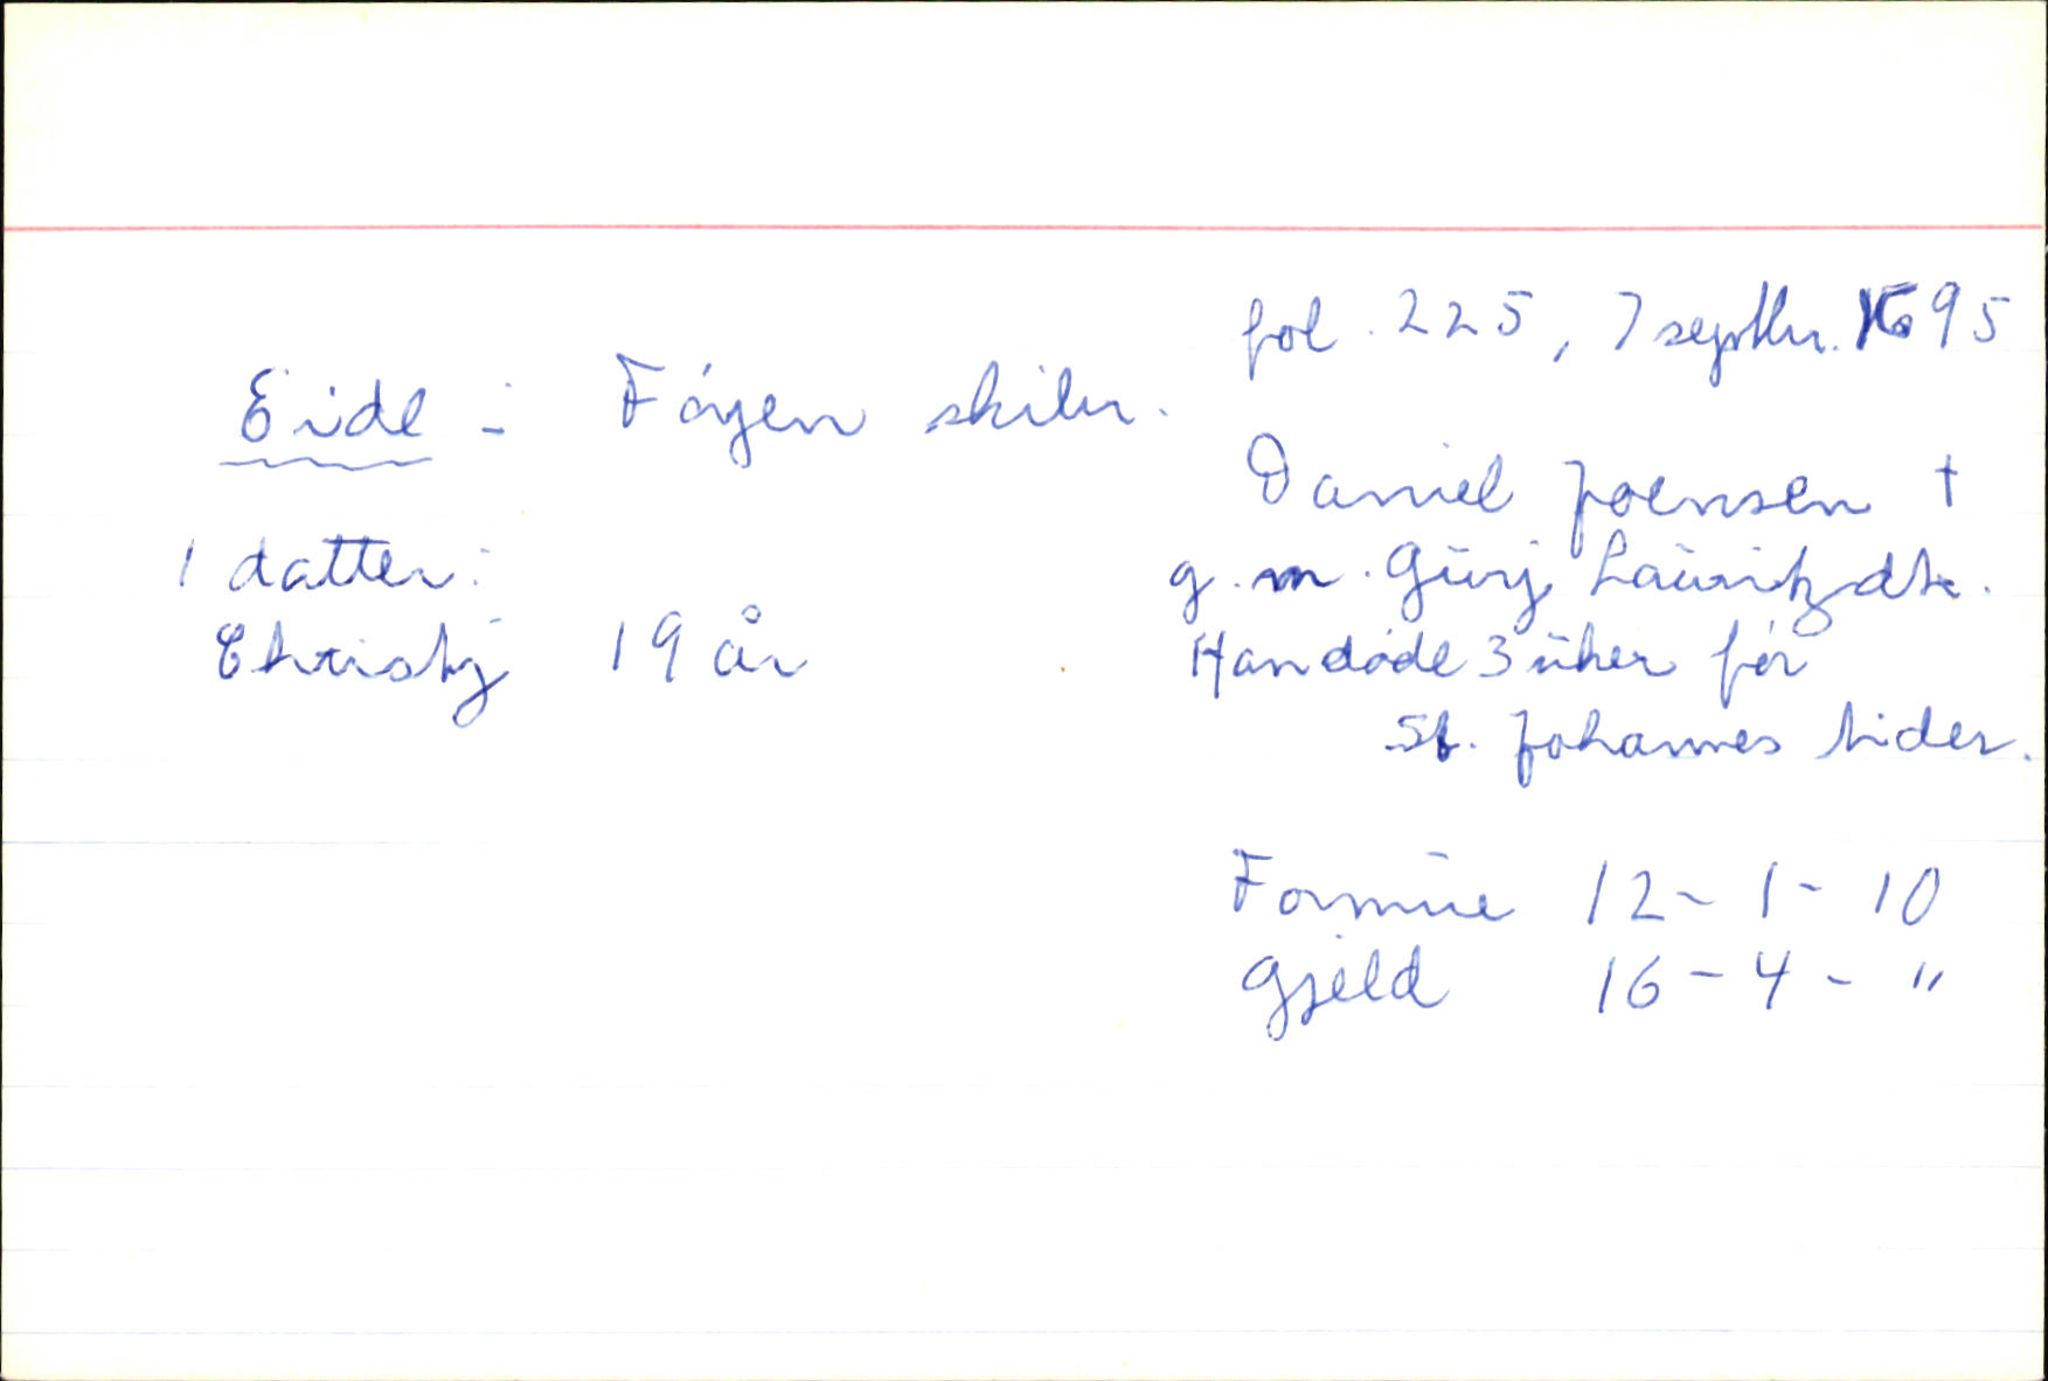 fol. 225, 7 septbr. 1695
Eide - Föyen skibr.
Daniel Joensen †
g. m. Gurj Lauritzdtr.
Han döde 3 uker för
St. Johannes tider.
1 datter:
Christj 19 år
Formue 12 - 1 - 10
Gjeld 16 - 4 - "